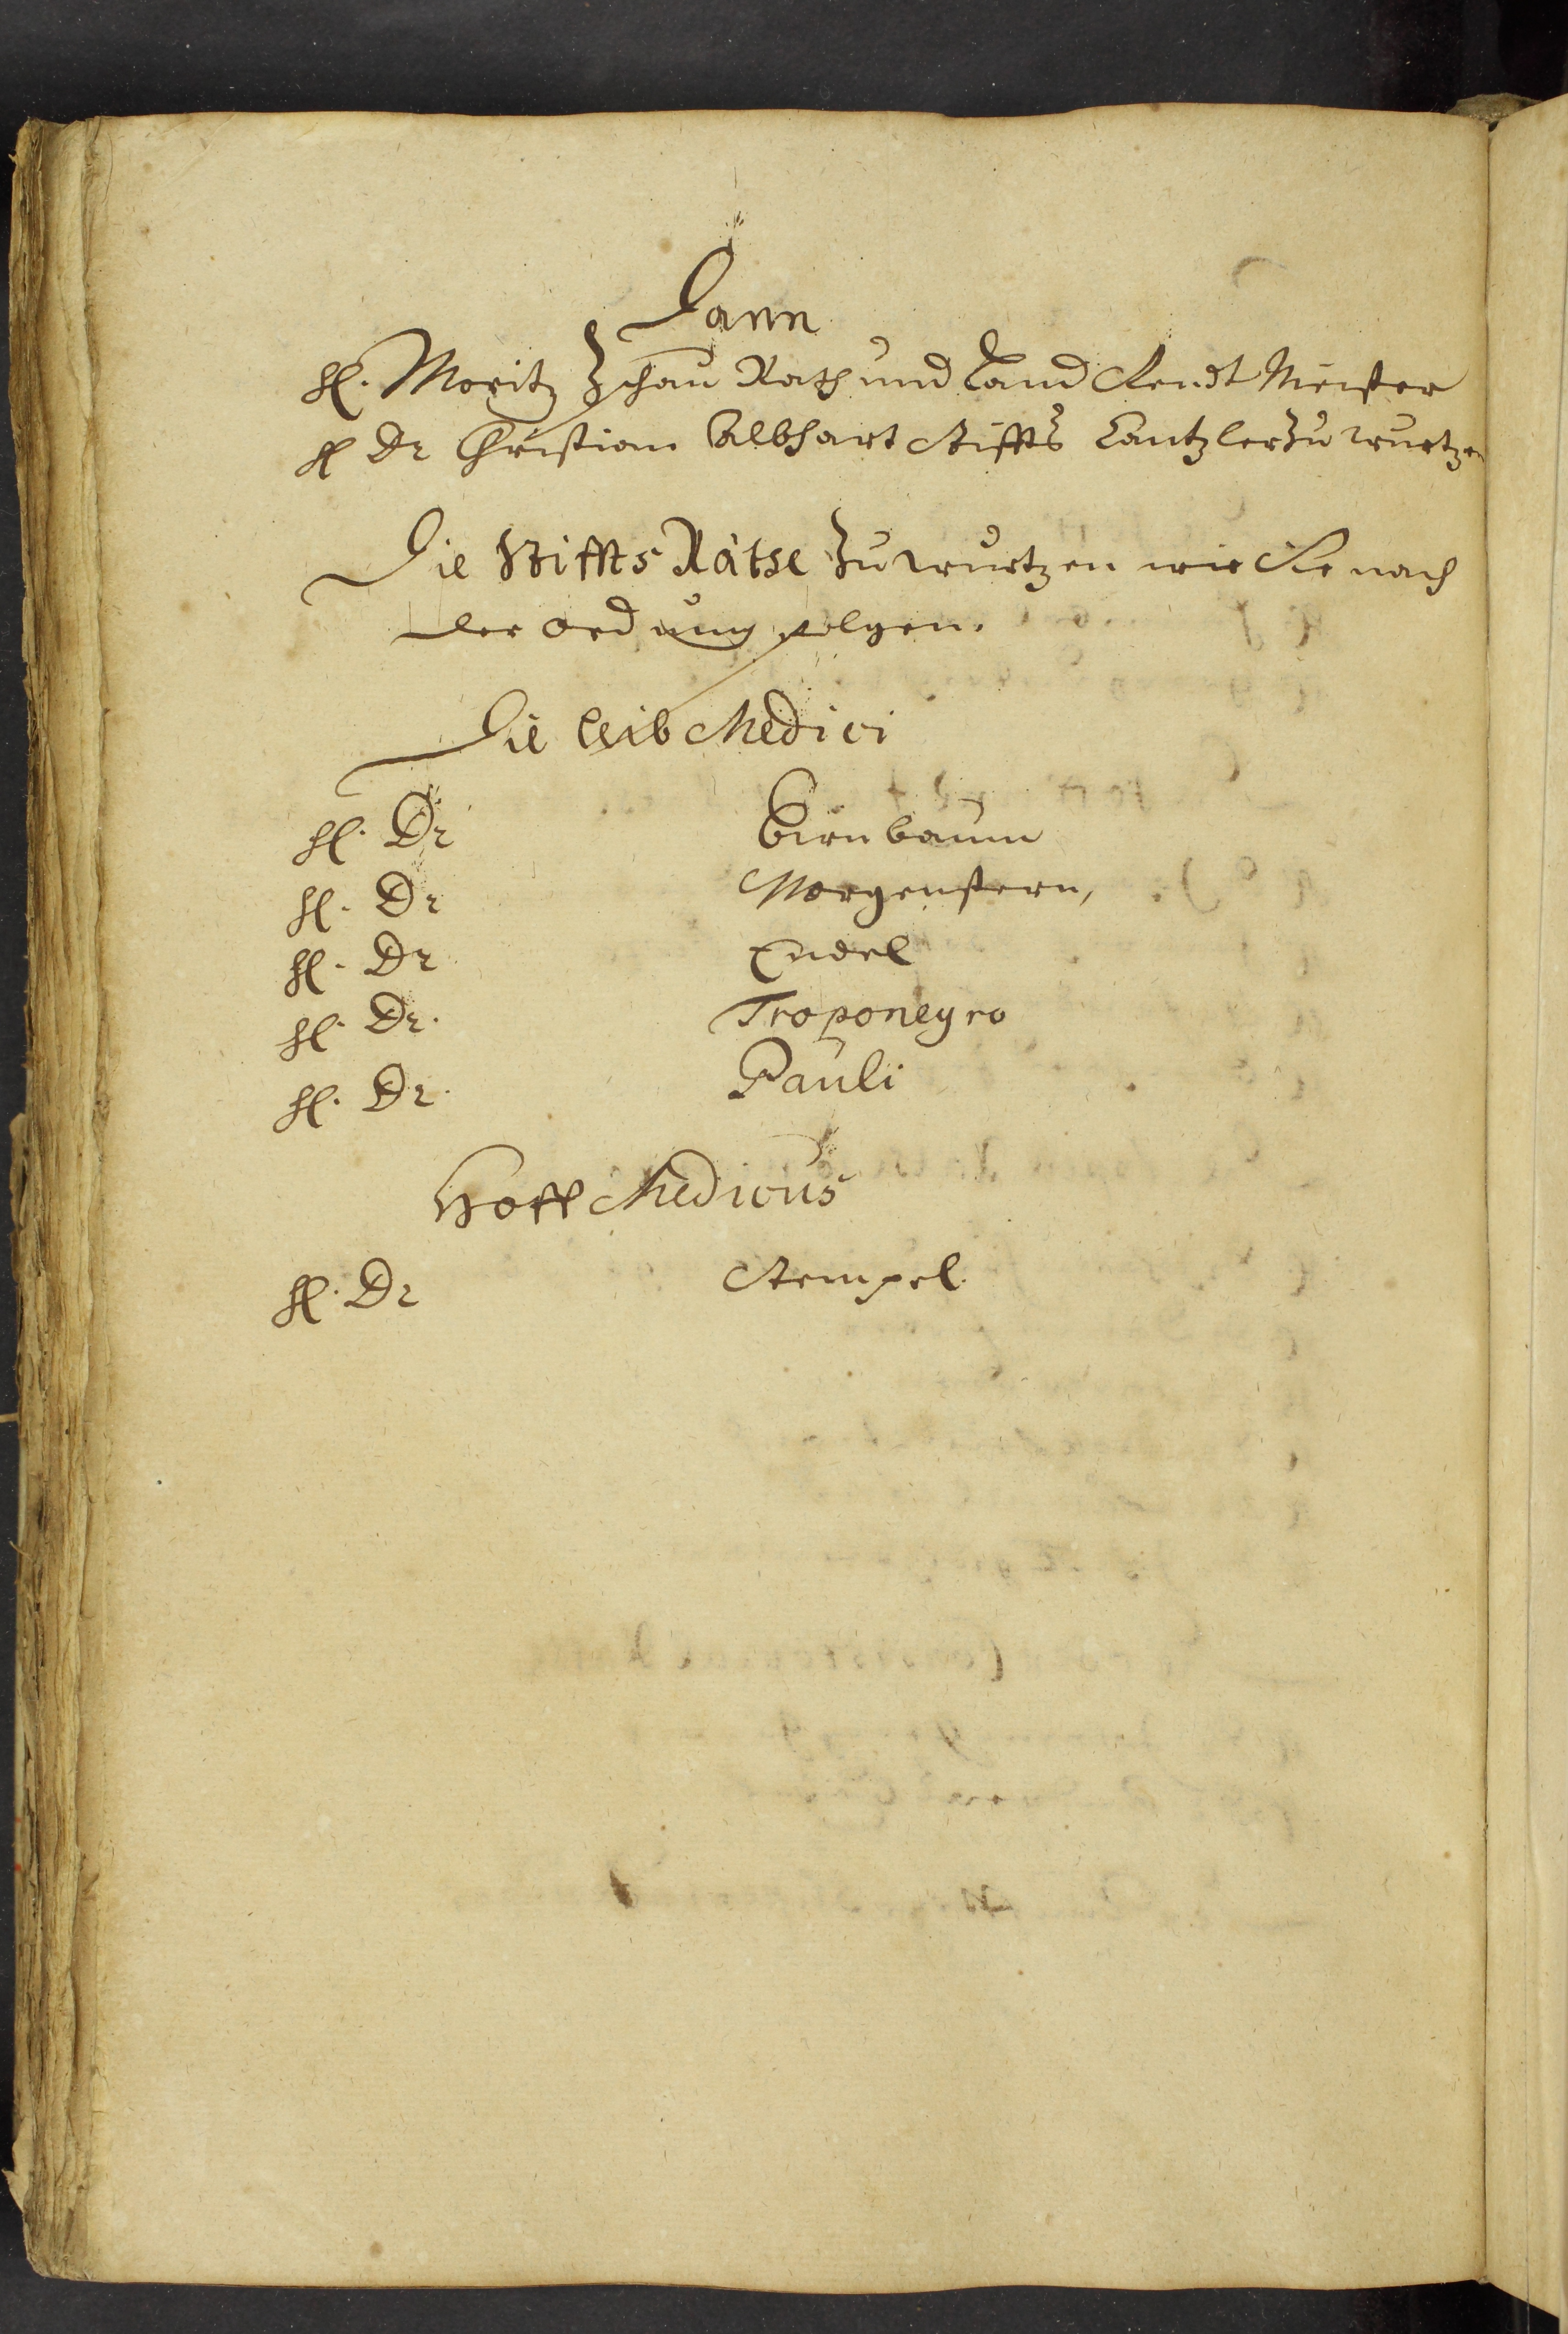 Dann
H. Moritz Zschau Rath und Land Rendt Meister
H Dr Christian Albhart Stiffts Cantzler Zu wurtzen
Die Stiffts Räthe Zu wurtzen wie Sie nach
der ordnung folgen.
Die Leib Medici
H. Dr Birnbaum
H. Dr Morgenstern,
H. Dr Endel
H. Dr. Troponegro
H. Dr. Pauli
Hoff Medicus
H. Dr Stempel